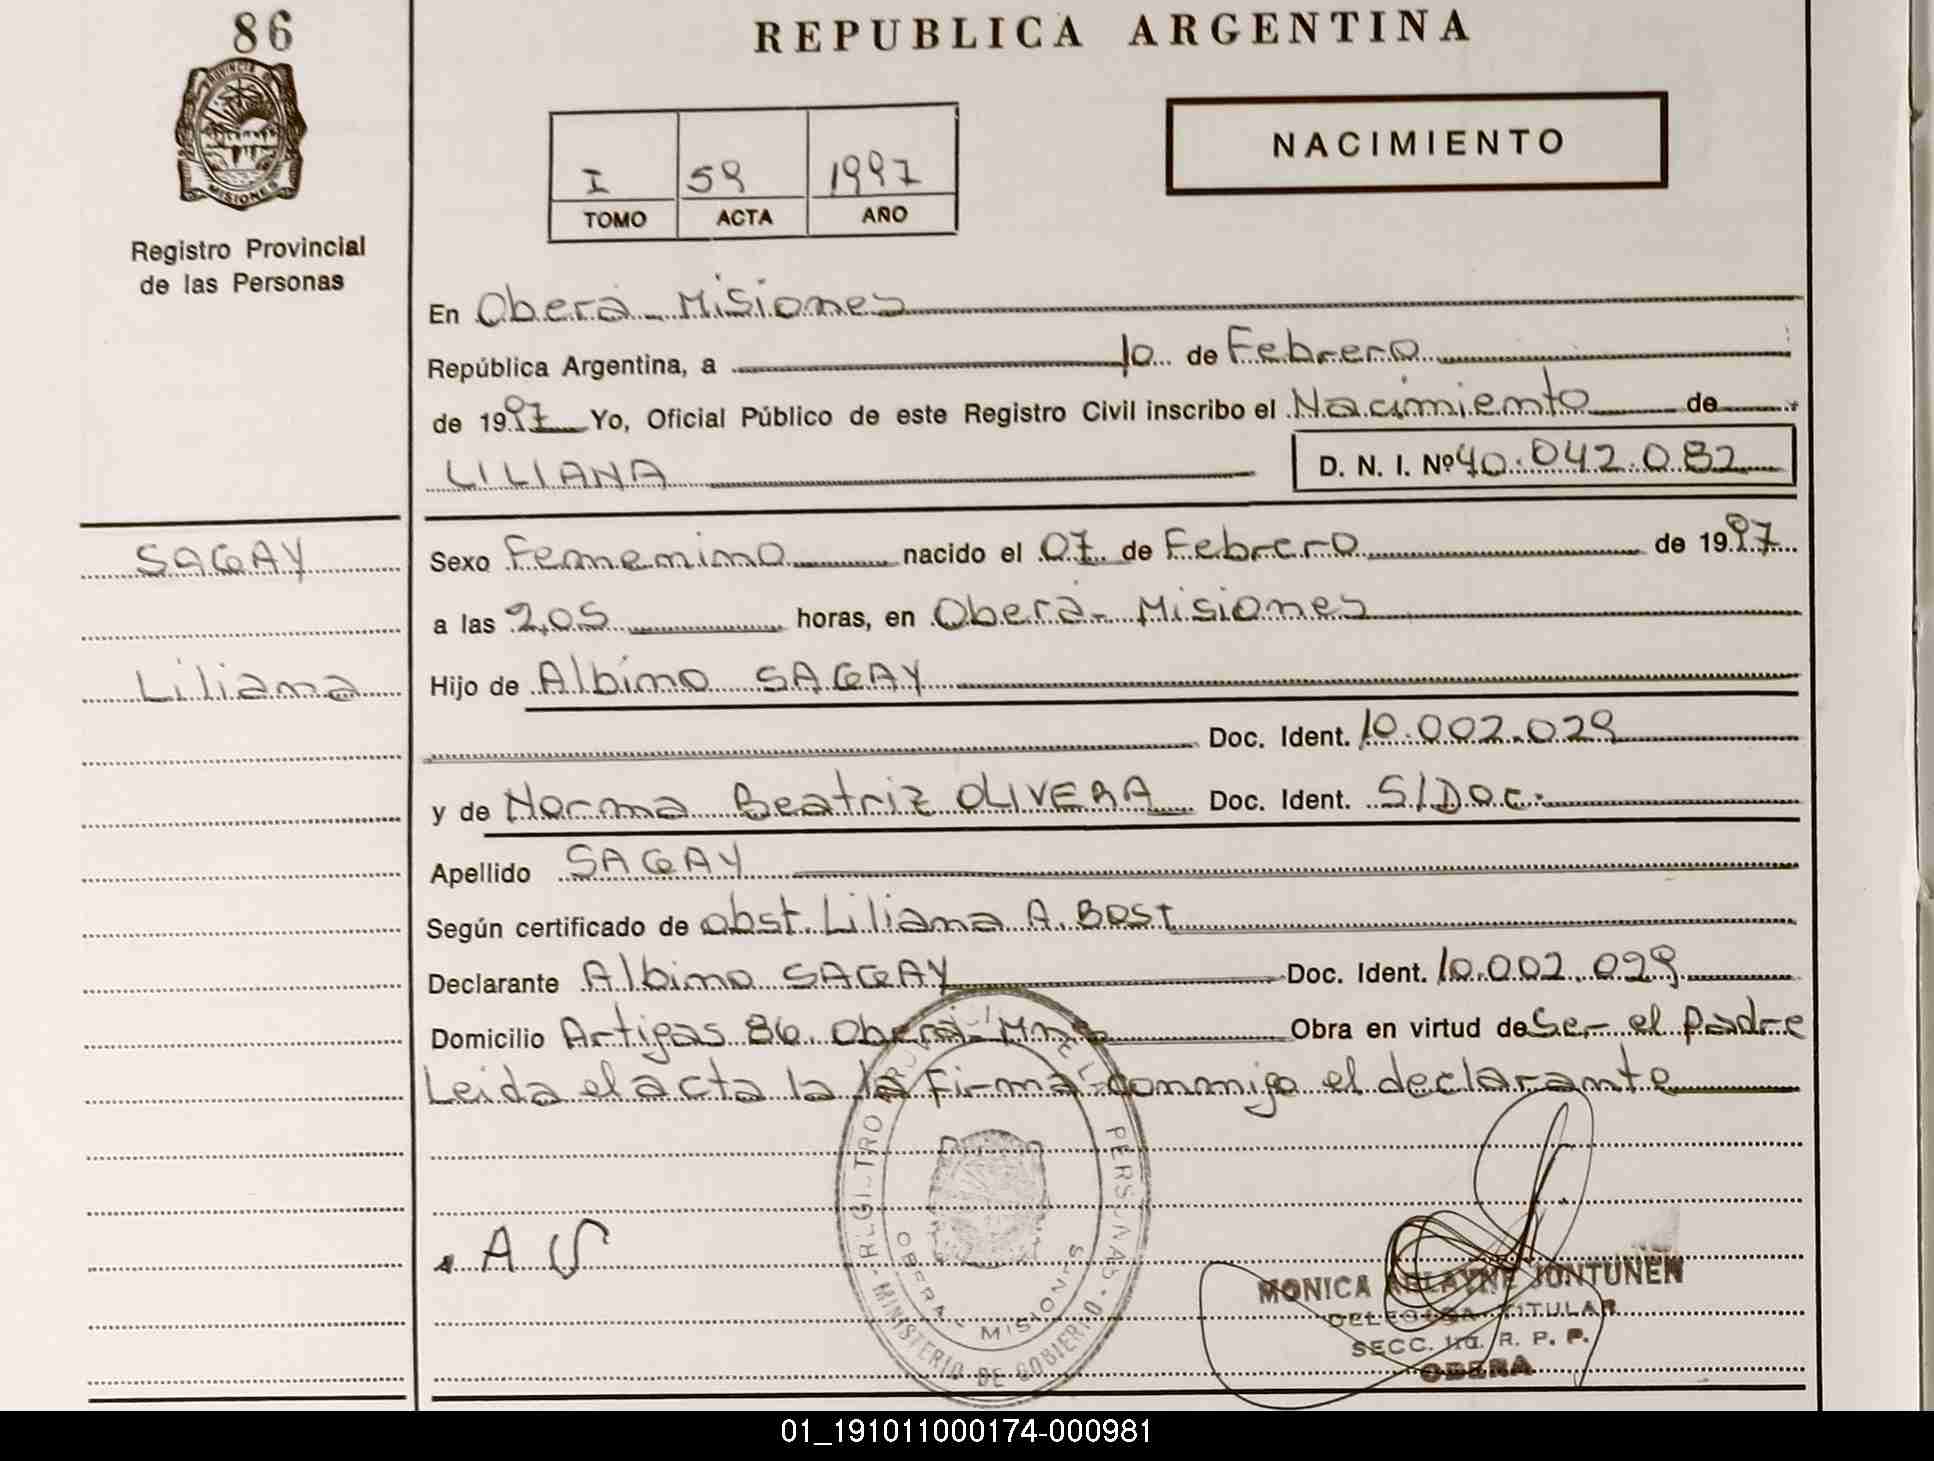 86
REPUBLICA ARGENTINA
PROVINCIA DE
MISIONES
Registro Provincial
de las Personas
NACIMIENTO
I 59 1997
TOMO ACTA AÑO
En Oberá - Misiones
República Argentina, a 10 de Febrero
de 1997 Yo, Oficial Público de este Registro Civil inscribo el Nacimiento de
LILIANA D. N. I. Nº 40.042.082
SAGAY
Liliana
Sexo Femenino nacido el 07 de Febrero de 1997
a las 2,05 horas, en Oberá - Misiones
Hijo de Albino SAGAY
Doc. Ident. 10.002.029
y de Norma Beatriz OLIVERA Doc. Ident. S/Doc.
Apellido SAGAY
Según certificado de obst. Liliana A. Bost
Declarante Albino SAGAY Doc. Ident. 10.002.029
Domicilio Artigas 86. Oberá - Mnes Obra en virtud de Ser el padre
Leida el acta la la firma conmigo el declarante
A S
REGISTRO PERSONAS
OBERA - MISIONES
MINISTERIO DE GOBIERNO
MONICA JONTUNEN
DELEGADA TITULAR
SECC. 1ra. R. P. P.
OBERA
01_191011000174-000981